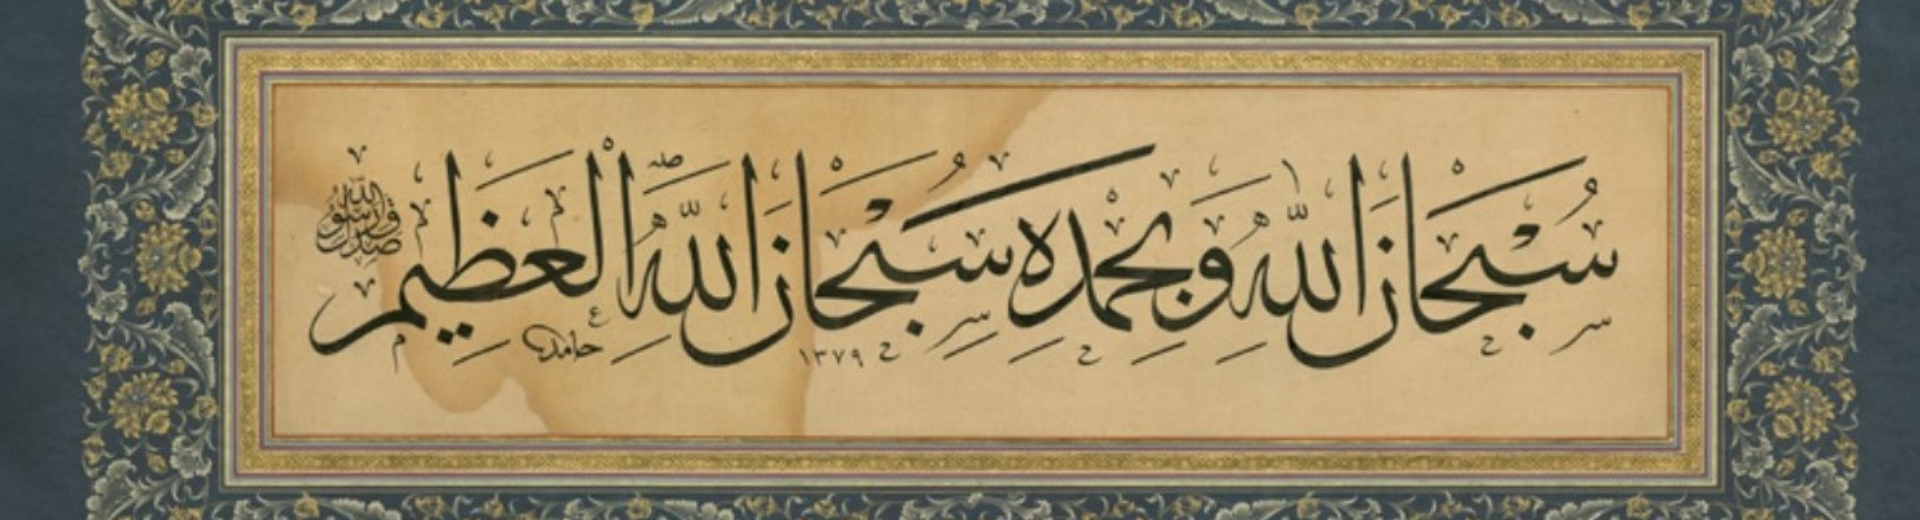 سُبْحَانَ اللّٰهِ وَبِحَمْدِهِ سُبْحَانَ اللّٰهِ الْعَظِيمِ
صدق رسول الله
حامد ١٣٧٩